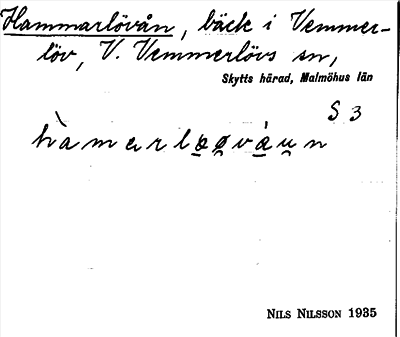 Hammarlövån, bäck i Vemmer-
löv, V. Vemmerlövs sn,
Skytts härad, Malmöhus län
S 3
hàmarlæ̱ø̱vá̱u̱n
NILS NILSSON 1935